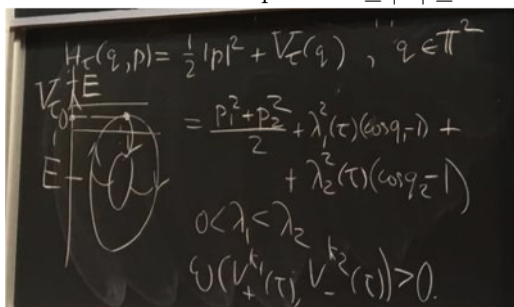 H_τ(q,p) = 1/2 |p|² + V_τ(q) , q ∈ 𝕋²
V_τ
E
0
= (p₁² + p₂²)/2 + λ₁²(τ)(cos q₁ - 1) +
E
+ λ₂²(τ)(cos q₂ - 1)
0 < λ₁ < λ₂
ω(V₊^{k₁}(τ), V₋^{k₂}(τ)) > 0.